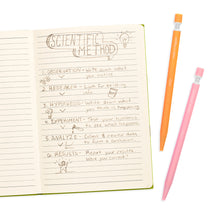 SCIENTIFIC
METHOD
1. OBSERVATION - Write down what
you notice
2. RESEARCH -
3. HYPOTHESIS - Write down what
you think is happening
4. EXPERIMENT - Test your hypothesis
to see what happens
5. ANALYZE - Collect & record data
to form a conclusion
6. RESULTS - Report your results
Were you correct?